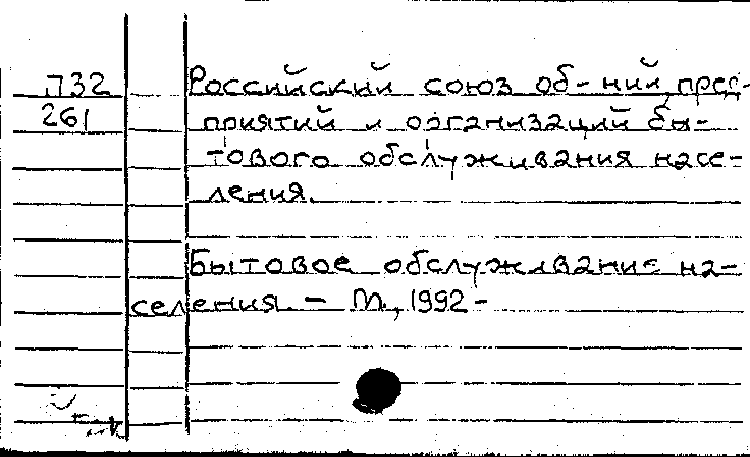 П32
261
Российский союз об-ний, пред-
приятий и организаций бы-
тового обслуживания насе-
ления.
Бытовое обслуживание на-
селения. – М., 1992 -